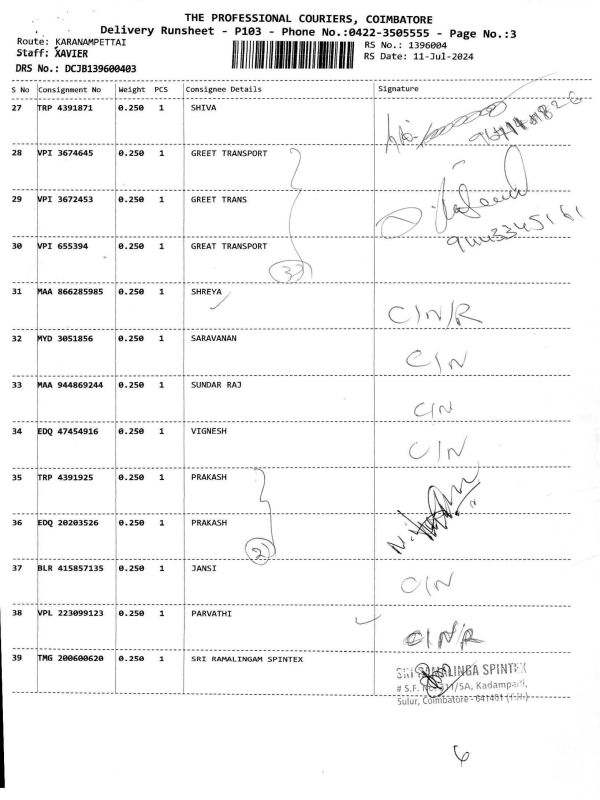 THE PROFESSIONAL COURIERS, COIMBATORE
Delivery Runsheet - P103 - Phone No.:0422-3505555 - Page No.:3
Route: KARANAMPETTAI RS No.: 1396004
Staff: XAVIER RS Date: 11-Jul-2024
DRS No.: DCJB139600403
S No Consignment No Weight PCS Consignee Details Signature
27 TRP 4391871 0.250 1 SHIVA
28 VPI 3674645 0.250 1 GREET TRANSPORT
29 VPI 3672453 0.250 1 GREET TRANS
9443345161
30 VPI 655394 0.250 1 GREAT TRANSPORT
3
31 MAA 866285985 0.250 1 SHREYA
C/N/R
32 MYD 3051856 0.250 1 SARAVANAN
C/N
33 MAA 944869244 0.250 1 SUNDAR RAJ
C/N
34 EDQ 47454916 0.250 1 VIGNESH
C/N
35 TRP 4391925 0.250 1 PRAKASH
36 EDQ 20203526 0.250 1 PRAKASH
2
37 BLR 415857135 0.250 1 JANSI
C/N
38 VPL 223099123 0.250 1 PARVATHI
C/N/R
39 TMG 200600620 0.250 1 SRI RAMALINGAM SPINTEX
SRI RAMALINGA SPINTEX
# S.F. No. 311/5A, Kadampadi,
Sulur, Coimbatore - 641401
6